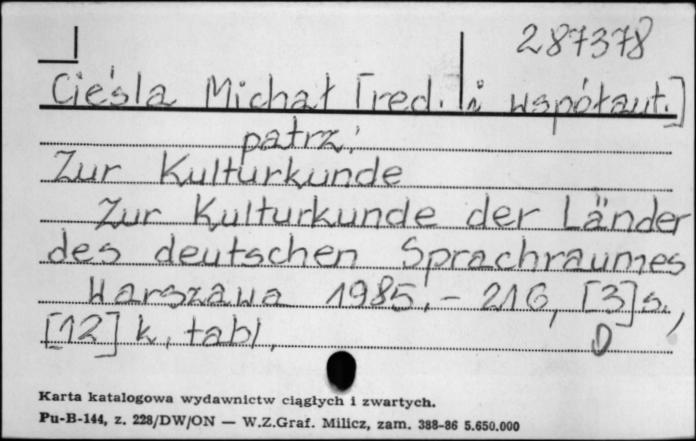 287378
Cieśla Michał [red. i współaut.]
patrz:
Zur Kulturkunde
Zur Kulturkunde der Länder
des deutschen Sprachraumes
Warszawa 1985.- 216, [3]s.,
[12] k. tabl.
Karta katalogowa wydawnictw ciągłych i zwartych.
Pu-B-144, z. 228/DW/ON — W.Z.Graf. Milicz, zam. 388-86 5.650.000